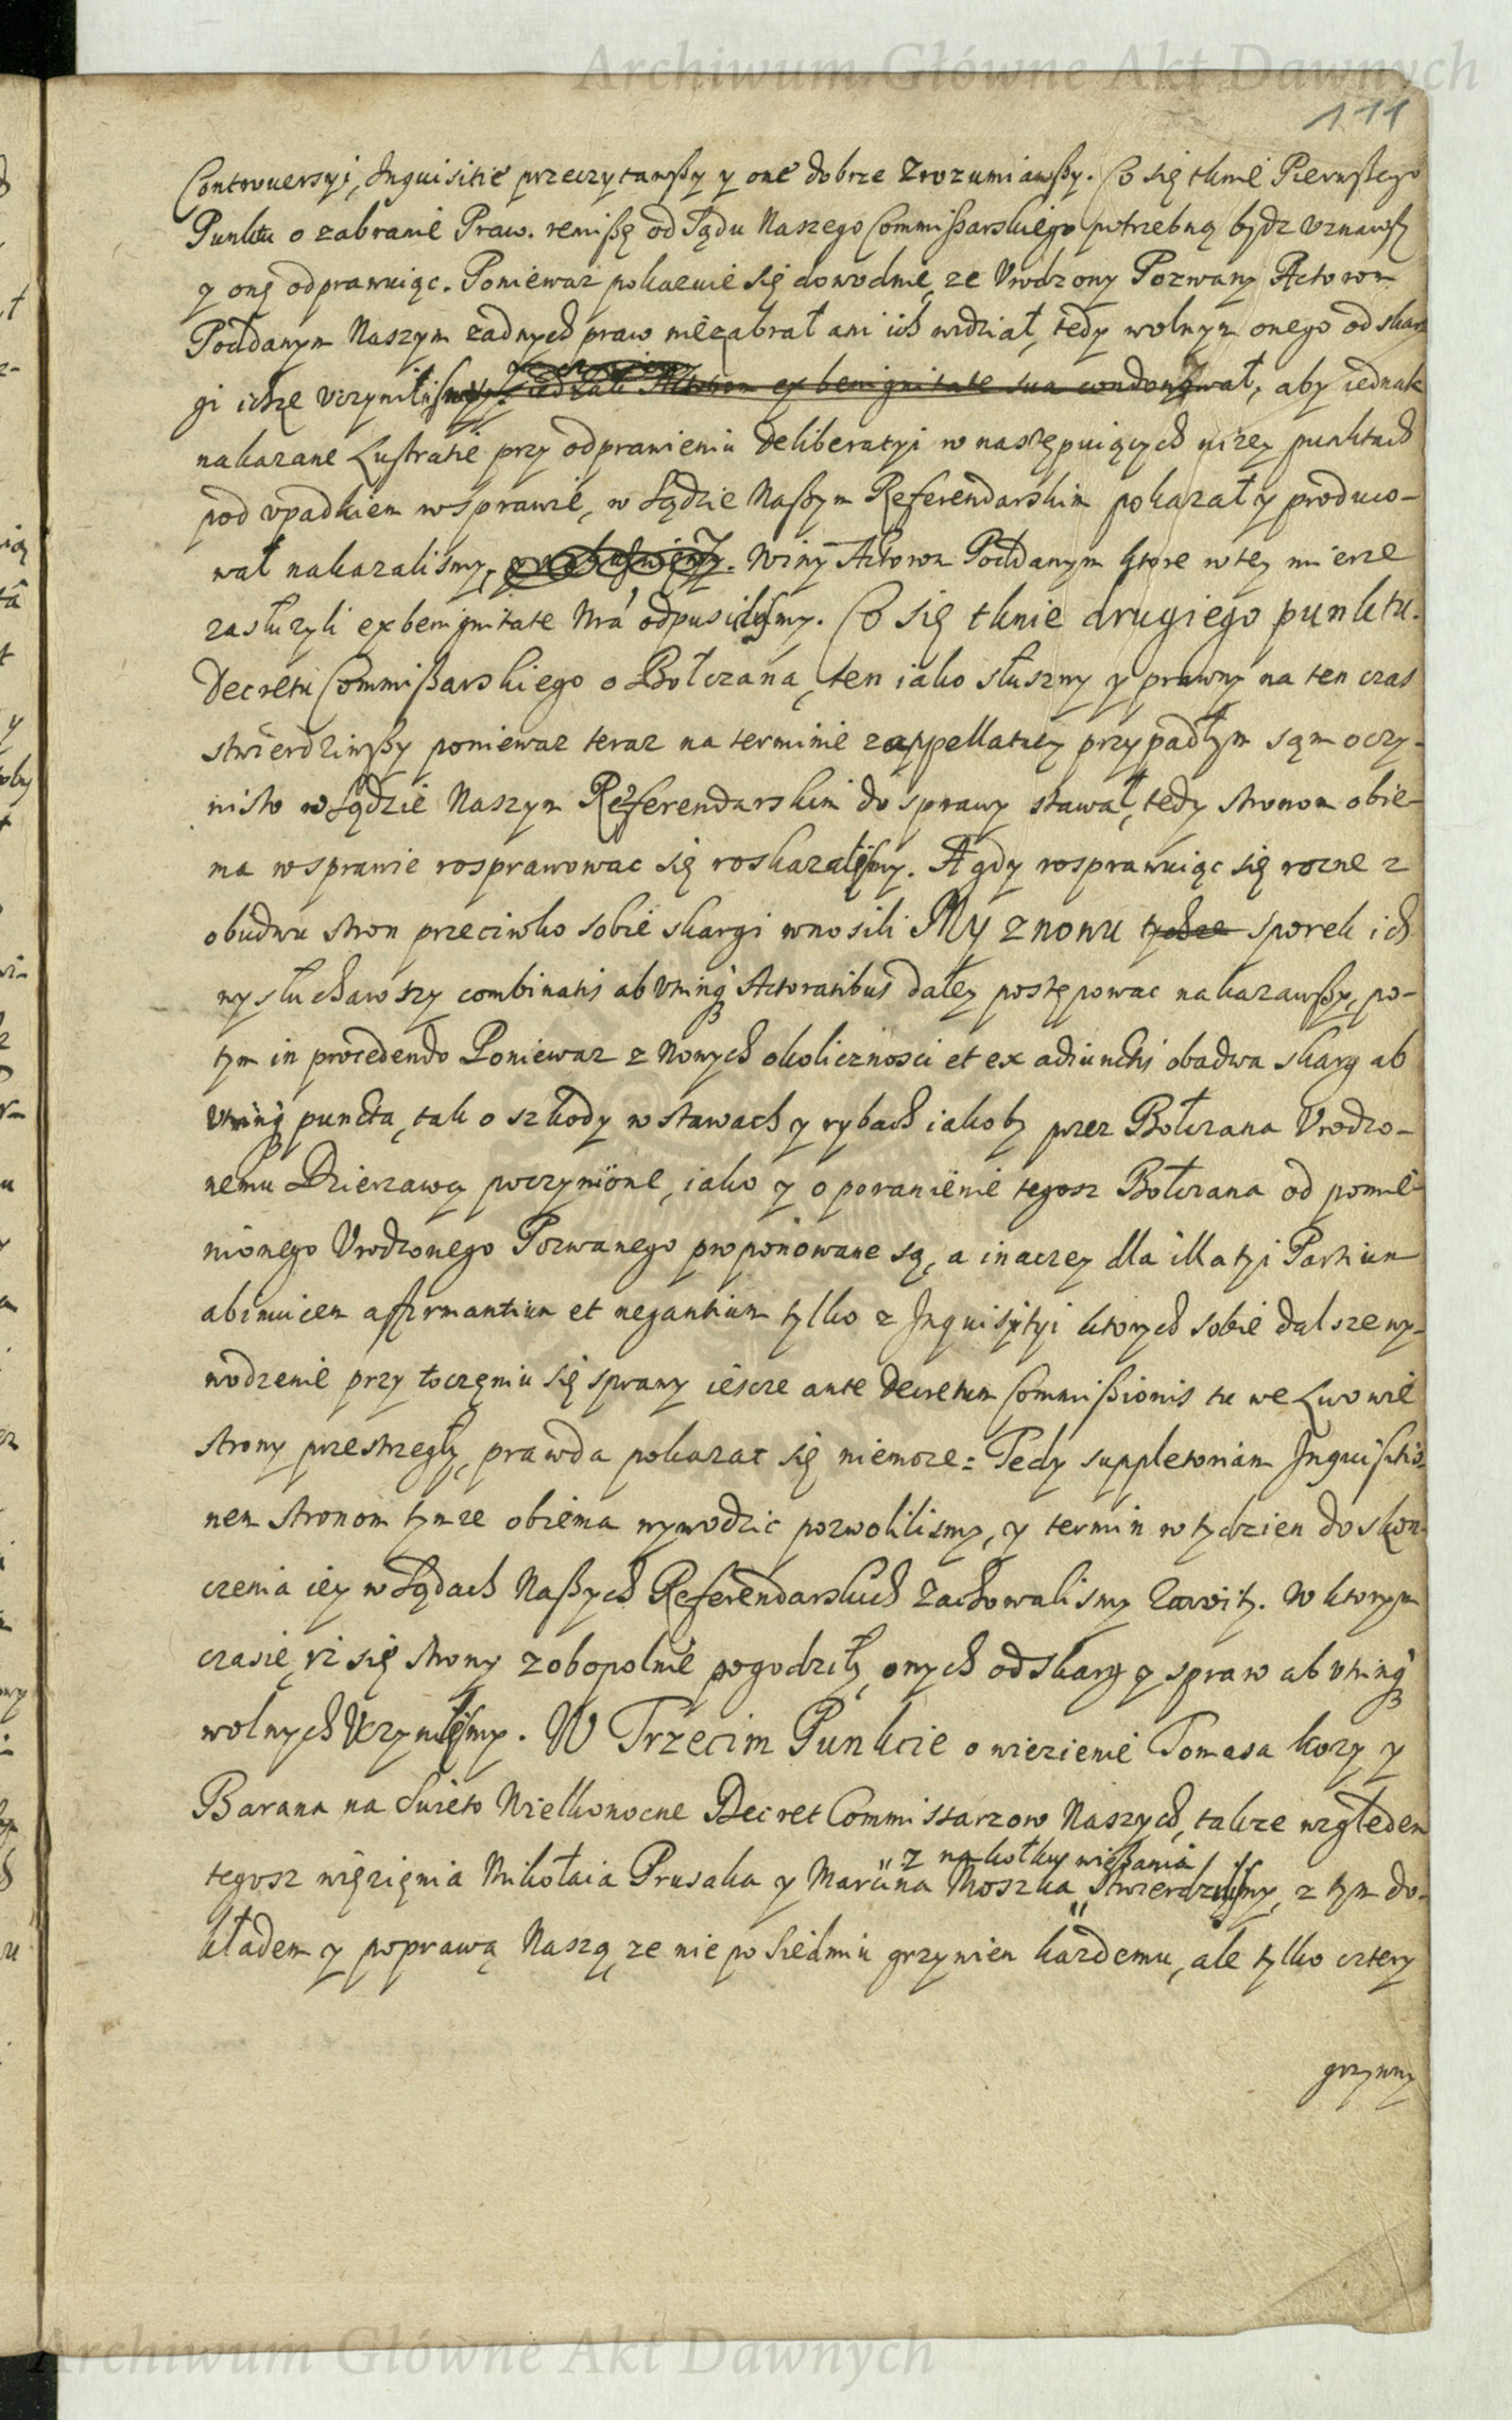 Archiwum Główne Akt Dawnych
111
Controuersyi, Inquisitie przeczytawszy y one dobrze zrozumiawszy. Co się tknie Pierwszego
Punktu o zabranie Praw. remissę od Sądu Naszego Commissarskiego potrzebną bydz vznawszy
y onę odprawuiąc. Poniewaz pokazuie się dowodnie, ze Vrodzony Pozwany Actorom
Poddanym Naszym zadnych praw niezabrał ani ich widział, tedy wolnym onego od skar
gi ichze vczyniliśmy ex benignitate sua condonował, aby iednak
nakazane Lustratie przy odprawieniu deliberatyi w nastepuiących nizey punktach
pod vpadkiem wsprawie, w Sądzie Naszym Referendarskim pokazał y produco-
wał nakazalismy. Winy Actorom Poddanym ktore wtey mierze
zasłuzyli ex benignitate nra odpusciliśmy. Co się tknie drugiego punktu.
Decretu Commissarskiego o Bołczana, ten iako słuszny y prawny na ten czas
stwierdziwszy poniewaz teraz na terminie zappellatiey przypadłym sąm oczy-
wisto w Sądzie Naszym Referendarskim do sprawy stawał, tedy stronom obie-
ma wsprawie rosprawowac się roskazaliśmy. A gdy rosprawuiąc się rozne z
obudwu stron przeciwko sobie skargi wnosili My znowu tychze sporek ich
wysłuchawszy combinatis ab vtrinq Actoratibus daley postępowac nakazawszy, po-
tym in procedendo Poniewaz z Nowych okolicznosci et ex adiunctis obadwa skarg ab
vtrinq puncta, tak o szkody w stawach y rybach iakoby przez Bołczana Vrodzo-
nemu Dzierzawcy poczynione, iako y o poranienie tegosz Bołczana od pomie-
nionego Vrodzonego Pozwanego proponowane są, a inaczey dla illatyi Partium
abinuicem affirmantium et negantium tylko z Inquisityi ktorych sobie dalsze wy-
wodzenie przy toczęniu się sprawy iescze ante decretum Commissionis tu we Lwowie
strony przestrzegły, prawda pokazac się niemoze: Tedy suppletoriam Inquisitio-
nem stronom tymze obiema wywodzic pozwolilismy, y termin w tydzien doskon
czenia iey w Sądach Naszych Referendarskich zachowalismy zawity. W ktorym
czasie, iz się strony zobopolnie pogodziły, onych od skarg y spraw ab vtrinq
wolnych vczyniliśmy. W Trzecim Punkcie o wiezienie Tomasa kozy y
Barana na Swieto Wielkonocne Decret Commissarzow Naszych, takze względem
z nakołku wiszania
tegosz więzięnia Mikołaia Prusaka y Marcina Moszka stwierdziliśmy, z tym do-
kładem y poprawą Naszą, ze nie po siedmiu grzywien kazdemu, ale tylko cztery
grzywny
Archiwum Główne Akt Dawnych